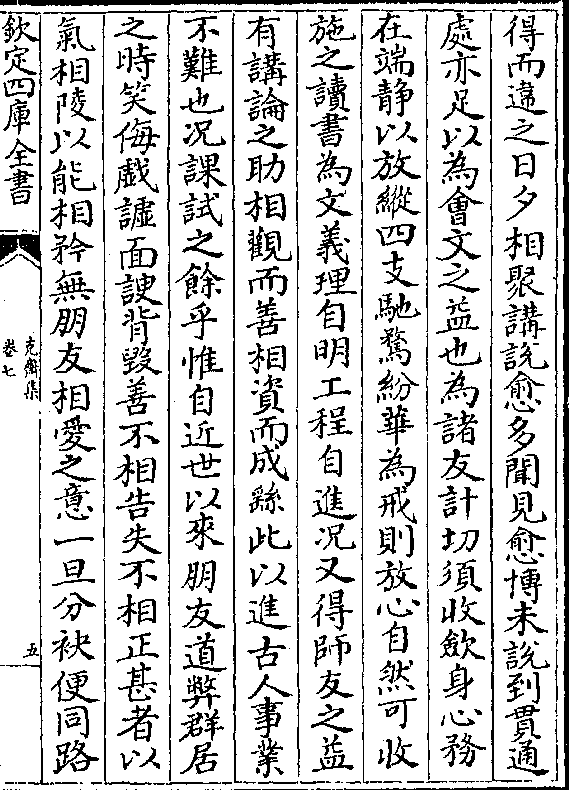 得而違之日夕相聚講說愈多聞見愈博未說到貫通
處亦足以為會文之益也為諸友計切須收斂身心務
在端静以放縱四支馳騖紛華為戒則放心自然可收
施之讀書為文義理自明工程自進况又得師友之益
有講論之助相觀而善相資而成繇此以進古人事業
不難也况課試之餘乎惟自近世以來朋友道弊群居
之時笑侮戲謔面諛背毀善不相告失不相正甚者以
氣相陵以能相矜無朋友相愛之意一旦分袂便同路
欽定四庫全書
克齋集
卷七
五